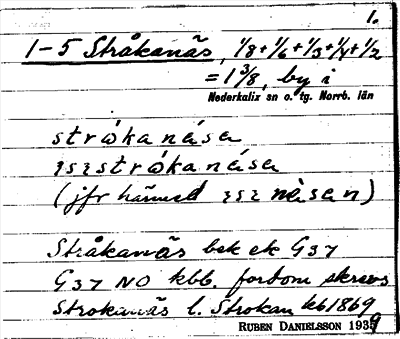 1.
1-5 Stråkanäs, 1/8+1/6+1/3+1/4+1/2
= 1 3/8, by i
Nederkalix sn o. tg. Norrb. län
stråkanäsa
stråkanäsa
(jfr härmed näsen)
Stråkanäs bek ek G37
G37 NO kbb. fordom skrevs
Strokanäs l. Strokan kb1869
RUBEN DANIELSSON 1939